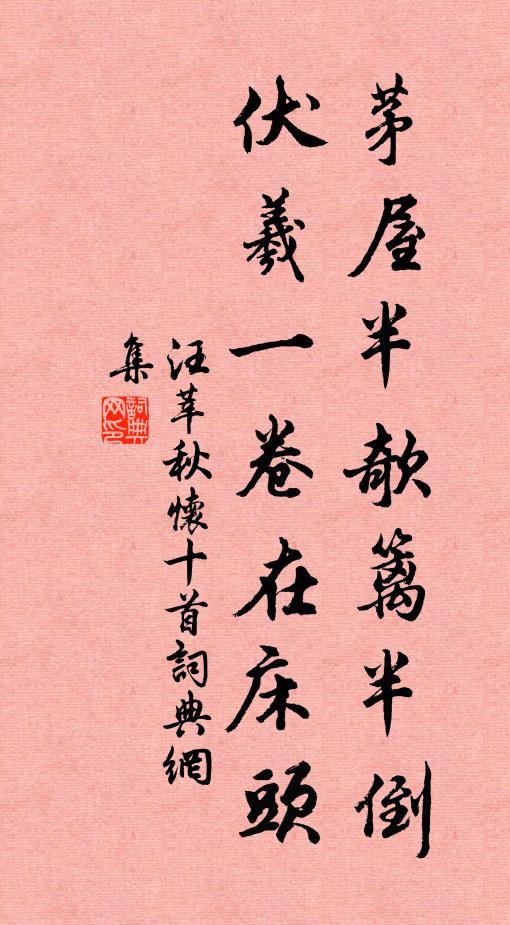 茅屋半欹籬半倒
伏羲一卷在床頭
汪莘秋懷十首詞典網
集
詞典
网印